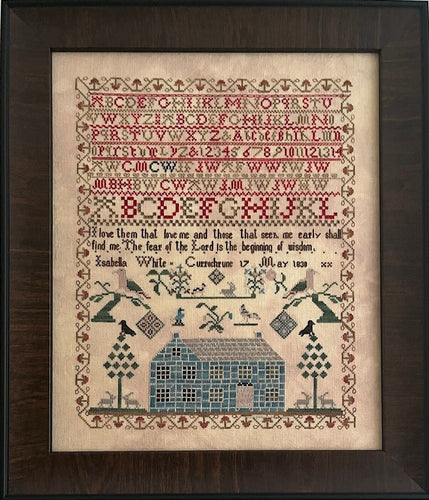 ABCDEFGHIJKLMNOPQRSTU
VWXYZ ABCDEFGHIJKLMNO
PQRSTUVWXYZ&Abcdefghiklmn
opqrstuvwxyz&1234567891011121314
CMCW
MBHBWCWAWJMJWJWHW
ABCDEFGHIJKL
I love them that love me and those that seek me early shall
find me The fear of the Lord is the beginning of wisdom
Isabella White Currochrune 17 May 1830 xx